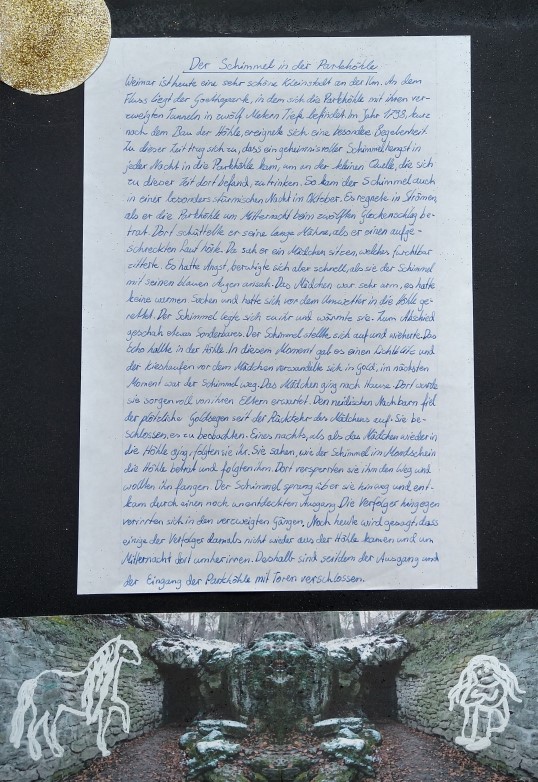 Der Schimmel in der Parkhöhle
Weimar ist heute eine sehr schöne Kleinstadt an der Ilm. An dem
Fluss liegt der Goethepark, in dem sich die Parkhöhle mit ihren ver-
zweigten Tunneln in zwölf Metern Tiefe befindet. Im Jahr 1798, kurz
nach dem Bau der Höhle, ereignete sich eine besondere Begebenheit.
Zu dieser Zeit trug sich zu, dass ein geheimnisvoller Schimmelhengst in
jeder Nacht in die Parkhöhle kam, um an der kleinen Quelle, die sich
zu dieser Zeit dort befand, zu trinken. So kam der Schimmel auch
in einer besonders stürmischen Nacht im Oktober. Es regnete in Strömen,
als er die Parkhöhle um Mitternacht beim zwölften Glockenschlag be-
trat. Dort schüttelte er seine lange Mähne, als er einen aufge-
schreckten Laut hörte. Da sah er ein Mädchen sitzen, welches furchtbar
zitterte. Es hatte Angst, beruhigte sich aber schnell, als sie der Schimmel
mit seinen blauen Augen ansah. Das Mädchen war sehr arm, es hatte
keine warmen Sachen und hatte sich vor dem Unwetter in die Höhle ge-
rettet. Der Schimmel legte sich zu ihr und wärmte sie. Zum Abschied
geschah etwas Sonderbares. Der Schimmel stellte sich auf und wieherte. Das
Echo hallte in der Höhle. In diesem Moment gab es einen Lichtblitz und
der Kieshaufen vor dem Mädchen verwandelte sich in Gold, im nächsten
Moment war der Schimmel weg. Das Mädchen ging nach Hause. Dort wurde
sie sorgenvoll von ihren Eltern erwartet. Den neidischen Nachbarn fiel
der plötzliche Goldsegen seit der Rückkehr des Mädchens auf. Sie be-
schlossen, es zu beobachten. Eines nachts, als als das Mädchen wieder in
die Höhle ging, folgten sie ihr. Sie sahen, wie der Schimmel im Mondschein
die Höhle betrat und folgten ihm. Dort versperrten sie ihm den Weg und
wollten ihn fangen. Der Schimmel sprang über sie hinweg und ent-
kam durch einen noch unentdeckten Ausgang. Die Verfolger hingegen
verirrten sich in den verzweigten Gängen. Noch heute wird gesagt, dass
einige der Verfolger damals nicht wieder aus der Höhle kamen und um
Mitternacht dort umherirren. Deshalb sind seitdem der Ausgang und
der Eingang der Parkhöhle mit Toren verschlossen.